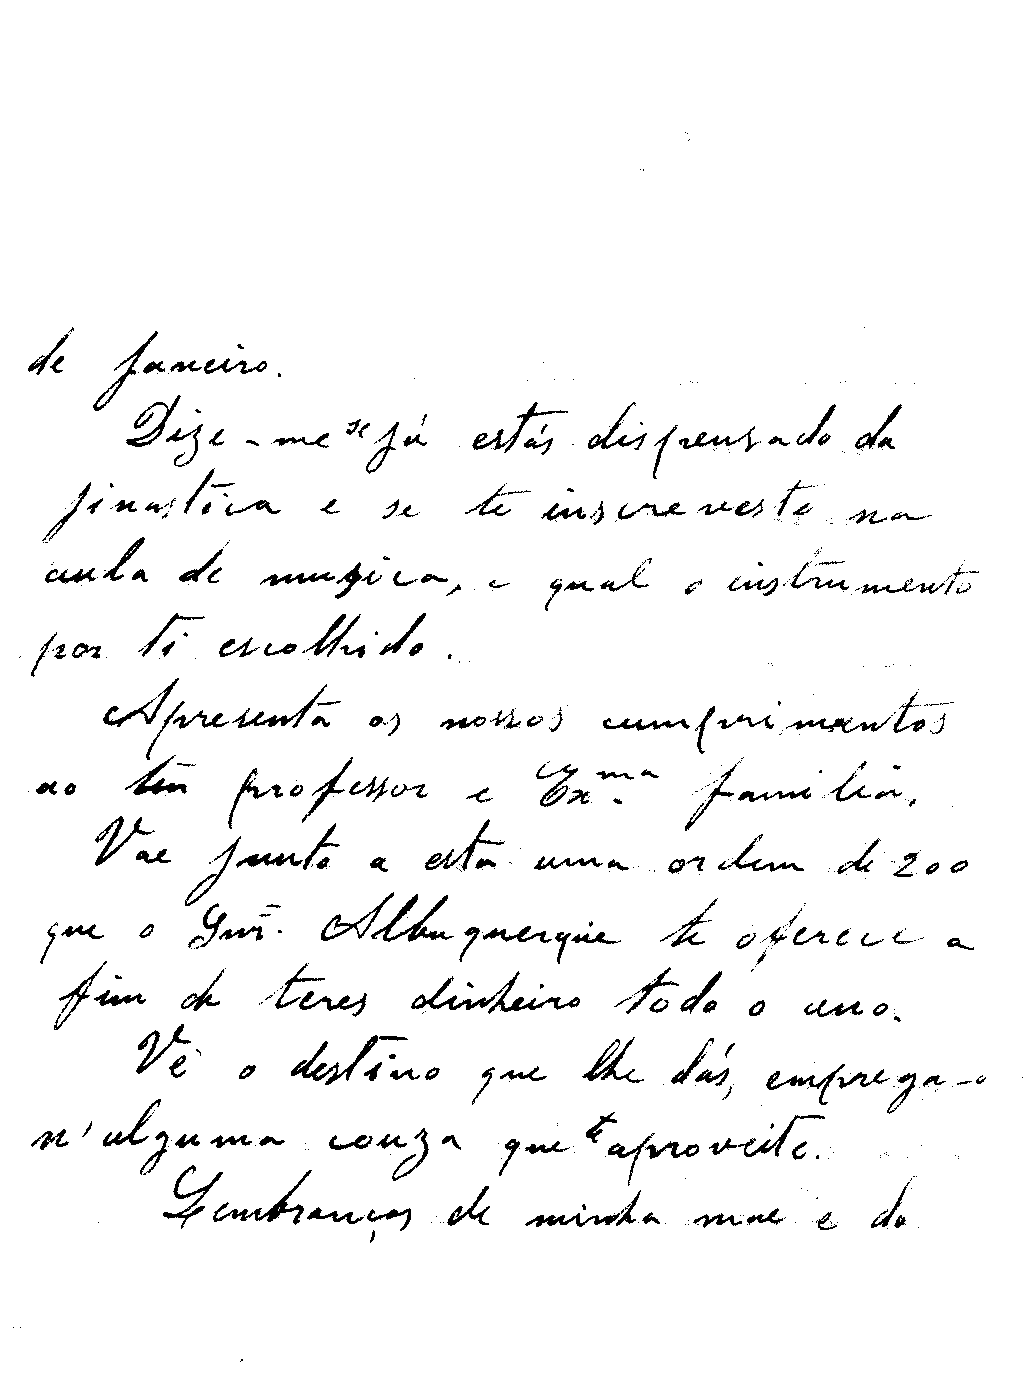 de Janeiro.
Dize-me se já estás dispensado da
jinastica e se te inscreveste na
aula de muzica, e qual o instrumento
por ti escolhido.
Apresenta os nossos cumprimentos
ao teu professor e Exma. familia.
Vae junto a esta uma ordem de 200
que o Snr. Albuquerque te oferece a
fim de teres dinheiro todo o ano.
Vê o destino que lhe dás, emprega-o
n'alguma couza que te aproveite.
Lembranças de minha mae e do